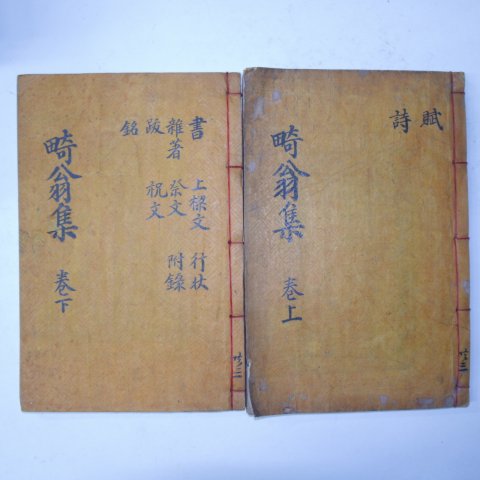 賦
詩
畸翁集
卷上
書 上樑文 行狀
雜著 祭文 附錄
跋 祝文
銘
畸翁集
卷下